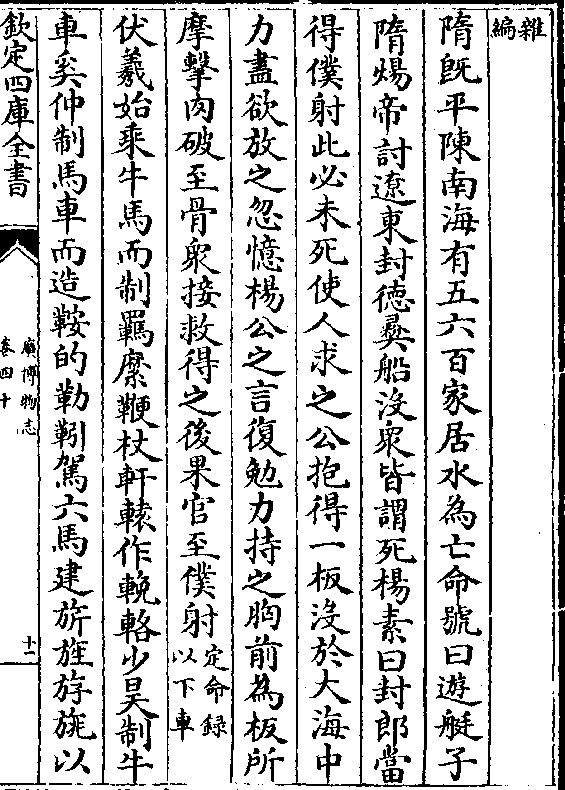 雜
編
隋既平陳南海有五六百家居水為亡命號曰遊艇子
隋煬帝討遼東封德彝船沒衆皆謂死楊素曰封郎當
得僕射此必未死使人求之公抱得一板沒於大海中
力盡欲放之忽憶楊公之言復勉力持之胸前為板所
摩擊肉破至骨衆接救得之後果官至僕射定命録
以下車
伏羲始乘牛馬而制羈縻鞭杖軒轅作輓輅少昊制牛
車奚仲制馬車而造鞍的勒靷駕六馬建旂旌斿旐以
欽定四庫全書
廣博物志
卷四十
十二